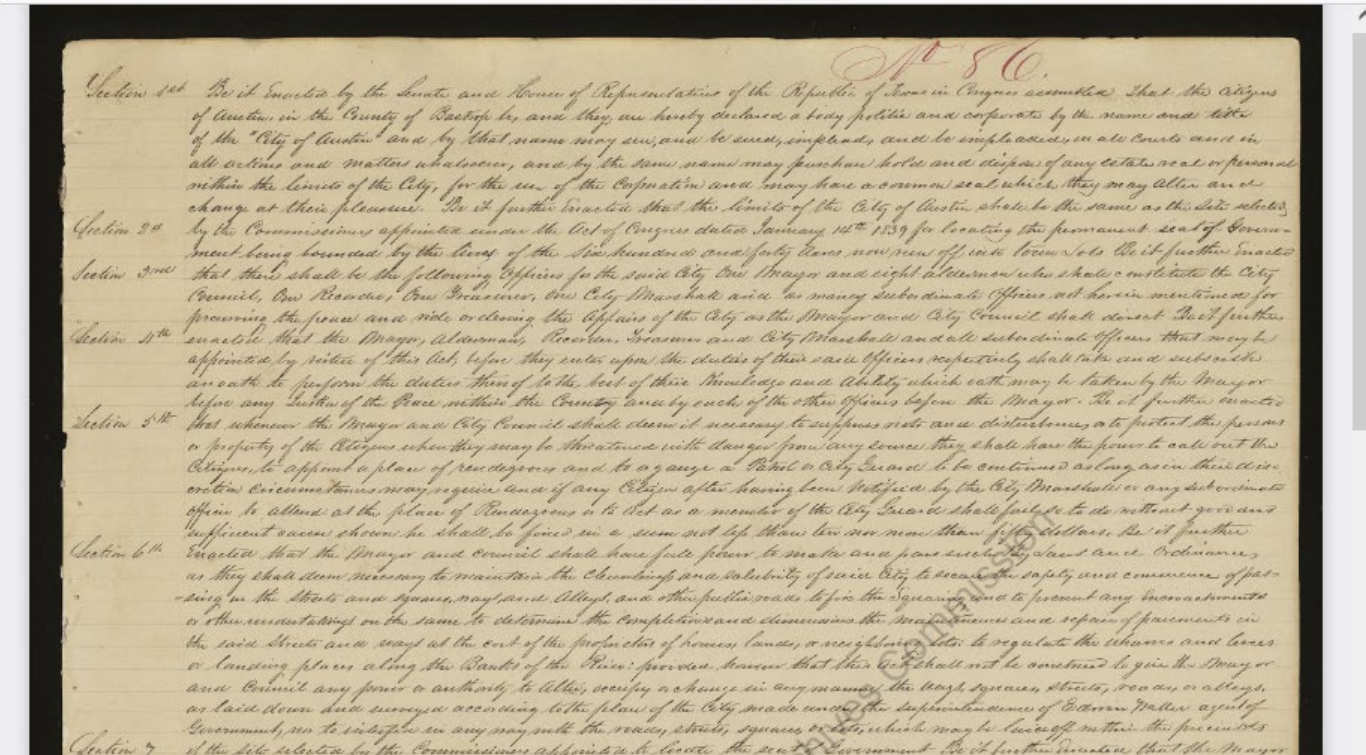 No 86.
Section 1st Be it Enacted by the Senate and House of Representatives of the Republic of Texas in Congress assembled That the Citizens
of Austin, in the County of Bastrop be, and they, are hereby declared a body politic and corporate by the name and title
of the "City of Austin" and by that name may sue, and be sued, implead, and be impleaded, in all Courts and in
all actions and matters whatsoever, and by the same name may purchase hold and dispose of any estate real or personal
within the limits of the City, for the use of the Corporation and may have a common seal which they may Alter and
change at their pleasure. Be it further Enacted that the limits of the City of Austin shall be the same as the Site selected
Section 2d by the Commissioners appointed under the Act of Congress dated January 14th 1839 for locating the permanent seat of Govern-
ment being bounded by the lines of the Six hundred and forty Acres now run off into Town Lots Be it further Enacted
Section 3rd that there shall be the following Officers for the said City One Mayor and eight aldermen who shall constitute the City
Council, One Recorder, One Treasurer, one City Marshall and as many subordinate Officers not herein mentioned for
preserving the peace and ordering the Affairs of the City as the Mayor and City Council shall direct Be it further
Section 4th enacted that the Mayor, Alderman, Recorder, Treasurer and City Marshall and all subordinate Officers that may be
appointed by virtue of this Act, before they enter upon the duties of their said Officers respectively shall take and subscribe
an oath to perform the duties thereof to the best of their Knowledge and Ability which oath may be taken by the Mayor
before any Justice of the Peace within the County and by each of the other officers before the Mayor. Be it further enacted
Section 5th that whenever the Mayor and City Council shall deem it necessary to suppress riots and disturbances, or to protect the persons
or property of the Citizens when they may be threatened with danger from any source they shall have the power to call out the
Citizens, to appoint a place of rendezvous and to organize a Patrol or City Guard to be continued as long as in their dis-
cretion circumstances may require and if any Citizen after having been Notified by the City Marshall or any subordinate
officer to attend at the place of Rendezvous or to Act as a member of the City Guard shall fail so to do without good and
sufficient cause shown he shall be fined in a sum not less than ten nor more than fifty dollars. Be it further
Section 6th Enacted that the Mayor and council shall have full power to make and pass such By Laws and Ordinances
as they shall deem necessary to maintain the cleanliness and salubrity of said City to secure the safety and convenience of pas-
-sing in the streets and squares, ways, and Alleys, and other public roads to fix the squaring and to prevent any encroachments
or other undertakings on the same to determine the completion and dimensions the maintenance and repair of pavements in
the said streets and ways at the cost of the proprietors of houses, lands, or neighboring lots: to regulate the wharves and levees
or landing places along the Banks of the River: provided however that this Act shall not be construed to give the Mayor
and Council any power or authority to Alter, occupy or change in any manner the ways, squares, streets, roads, or alleys,
as laid down and surveyed according to the plan of the City made under the superintendence of Edwin Waller agent of
Government, nor to interfere in any way with the roads, streets, squares or lots, which may be laid off within the precincts
Section 7 of the Site selected by the Commissioners appointed to locate the seat of Government Be it further Enacted, that the Mayor
Archives Commission